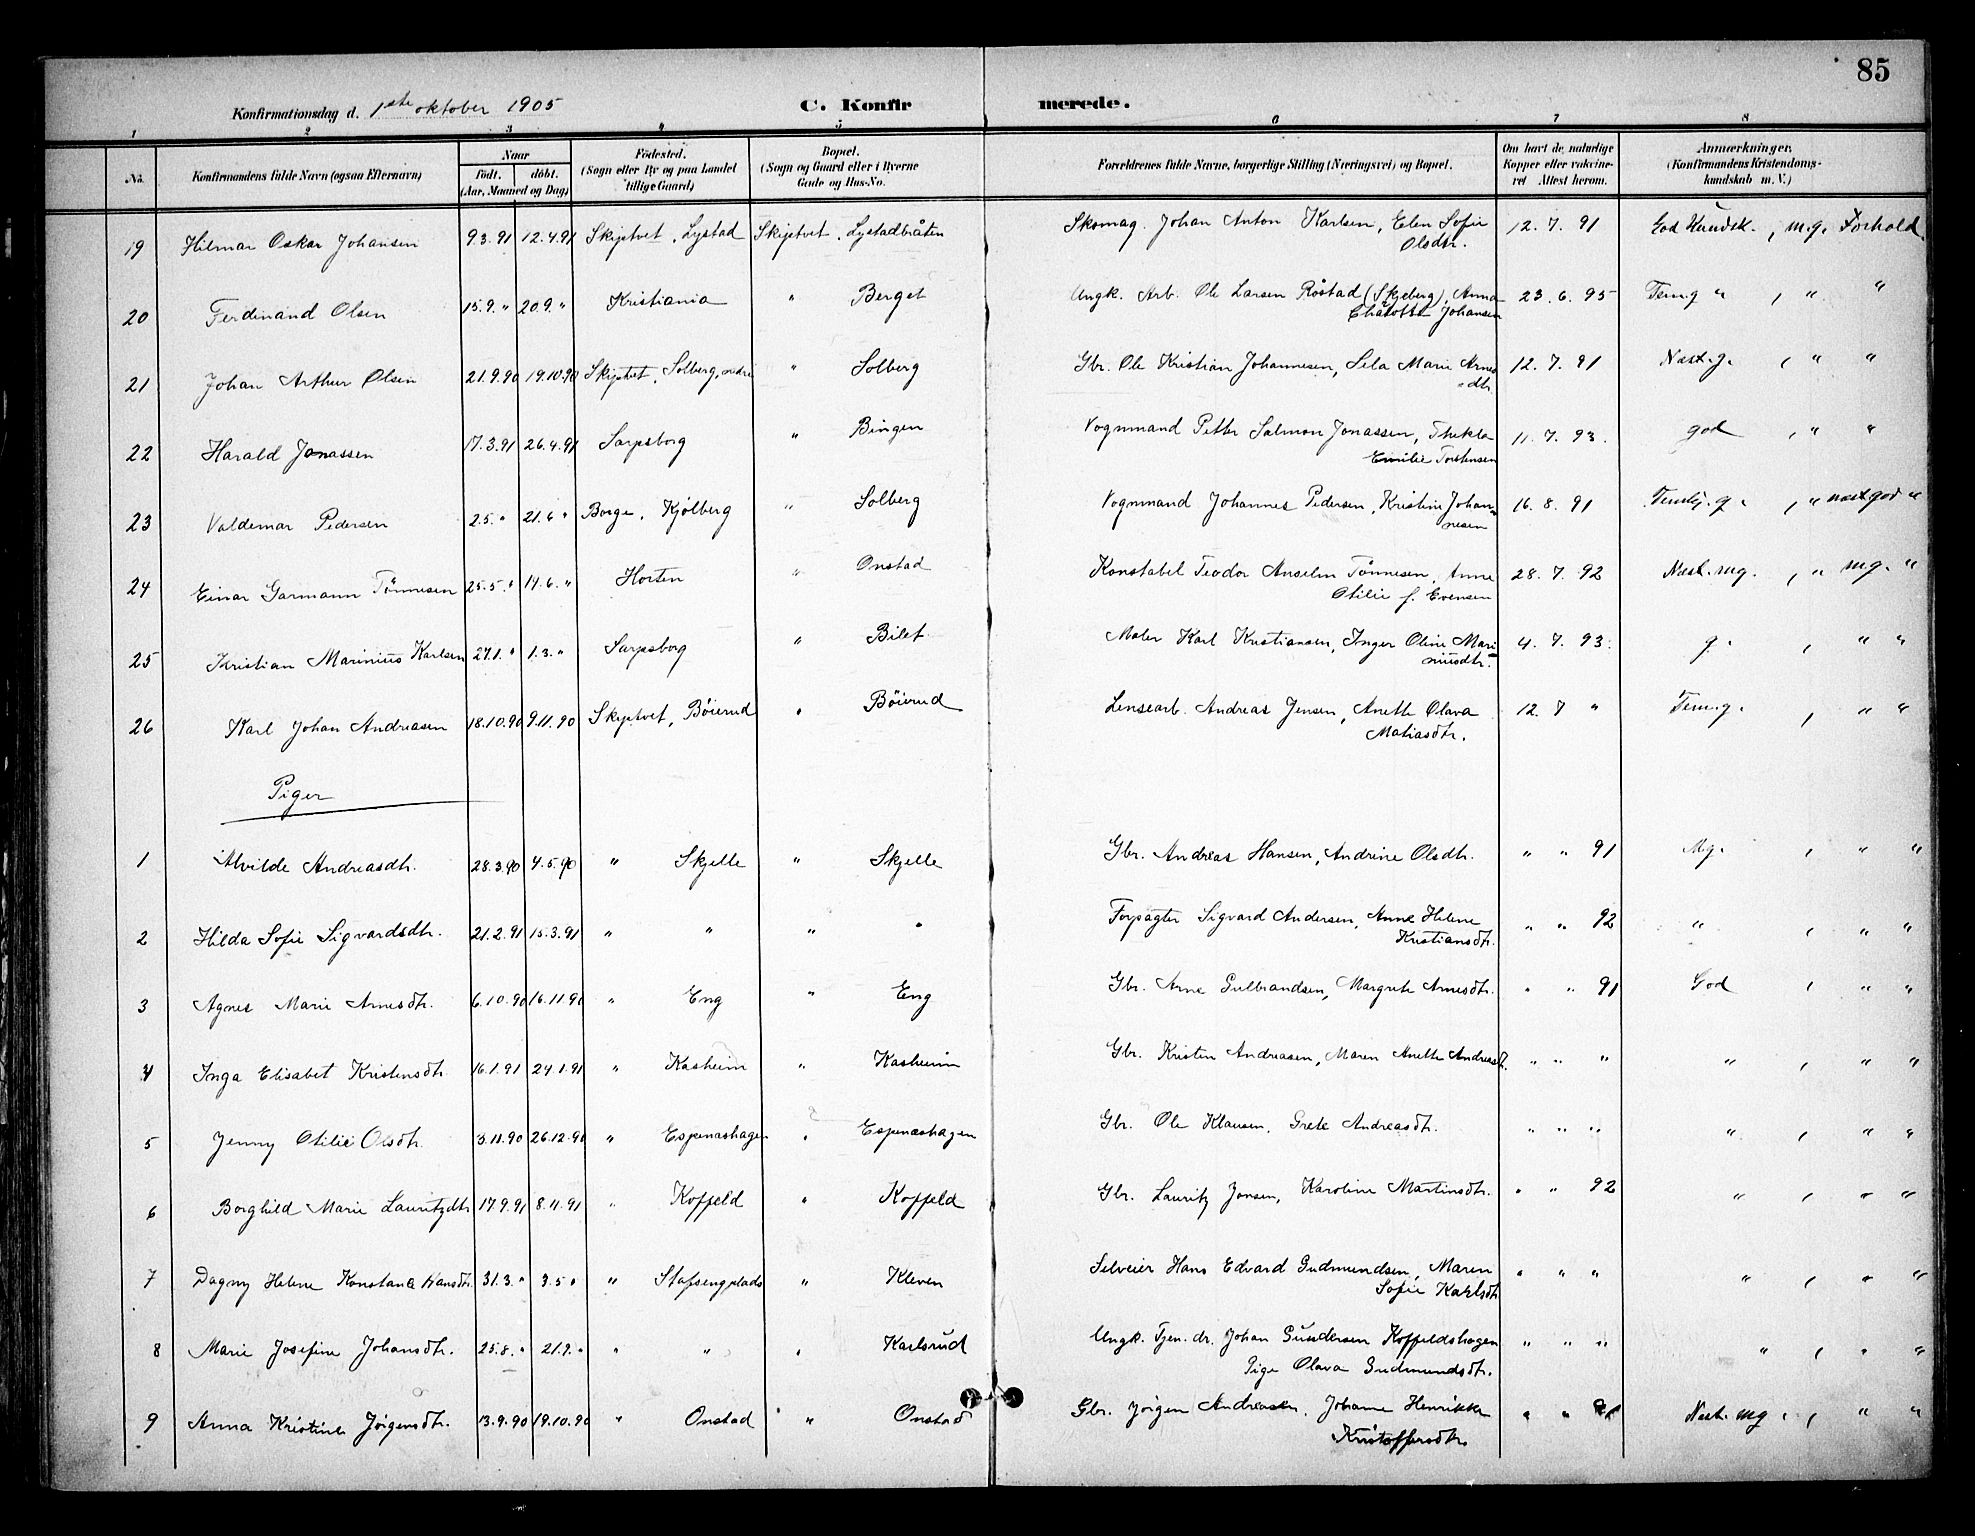 85
Konfirmationsdag d. 1ste oktober 1905 C. Konfirmerede.
1 2 3 4 5 6 7 8
No. Konfirmandens fulde Navn (ogsaa Efternavn) Naar født. døbt. (Aar, Maaned og Dag) Fødested. (Sogn eller By og paa Landet tillige Gaard) Bopæl. (Sogn og Gaard eller i Byerne Gade og Hus-No. Forældrenes fulde Navne, borgerlige Stilling (Næringsvei) og Bopæl. Om havt de naturlige Kopper eller vakcineret Attest herom. Anmærkninger. (Konfirmandens Kristendomskundskab m. V.)
19 Hilmar Oskar Johansen 9.3.91 12.4.91 Skiptvet, Lystad Skiptvet, Lystadbråten Skomag. Johan Anton Karlsen, Elen Sofie Olsdtr. 12. 7. 91 God Kundsk., m.g. Forhold.
20 Ferdinand Olsen 15.9. " 20.9. " Kristiania " Berget Ungk. Arb. Ole Larsen Röstad (Skjeberg), Anna Charlotte Johansen 23. 6. 95 Tem.g " , " "
21 Johan Arthur Olsen 21.9.90 19.10.90 Skiptvet, Solberg, nedre " Solberg Gbr. Ole Kristian Johannesen, Sela Marie Arnesdtr. 12. 7. 91 Næst.g. , " "
22 Harald Jonassen 17.3.91 26.4.91 Sarpsborg " Bingen Vognmand Petter Salmon Jonassen, Thekla Emilie Torstensen 11. 7. 93. god , " "
23 Valdemar Pedersen 2.5. " 21.6 " Borge, Kjölberg " Solberg Vognmand Johannes Pedersen, Kristine Johannesen 16. 8. 91 Temlig. g. , " næst god "
24 Einar Garmann Tönnesen 25.5. " 14.6. " Horten " Onstad Konstabel Teodor Anselm Tönnesen, Anne Otilie f. Evensen 28. 7. 92 Næst.mg. , " mg. "
25 Kristian Marinius Karlsen 27.1. " 1.3. " Sarpsborg " Bilet Maler Karl Kristiansen, Inger Oline Marinusdtr. 4. 7. 93. g. , " "
26 Karl Johan Andreasen 18.10.90 9.11.90 Skiptvet, Böierud " Böierud Lensearb. Andreas Jensen, Anette Olava Matiasdtr. 12. 7 " Tem.g. , " "
Piger
1 Alvilde Andreasdtr. 28.3.90 4.5.90 " Skjelle " Skjelle Gbr. Andreas Hansen, Andrine Olsdtr. " " 91 Mg. , " "
2 Hilda Sofie Sigvardsdtr. 21.2.91 15.3.91 " " " " Forpagter Sigvard Andersen, Anne Helene Kristiansdtr. " " 92 " , " "
3 Agnes Marie Arnesdtr. 6.10.90 16.11.90 " Eng " Eng Gbr. Arne Gulbrandsen, Margrete Arnesdtr. " " 91 God , " "
4 Inga Elisabet Kristensdtr. 16.1.91 24.1.91 " Kasheim " Kasheim Gbr. Kristen Andreasen, Maren Anette Andreasdtr. " " " " , " "
5 Jenny Otilie Olsdtr. 3.11.90 26.12.90 " Espenæshagen " Espenæshagen Gbr. Ole Klausen, Grete Andreasdtr. " " " " , " "
6 Borghild Marie Lauritzdtr. 17.9.91 8.11.91 " Koffeld " Koffeld Gbr. Lauritz Jensen, Karoline Martinsdtr. " " 92 " , " "
7 Dagny Helene Konstance Hansdtr. 31.3. " 3.5 " " Stafsengplads " Kleven Selveier Hans Edvard Gudmundsen, Maren Sofie Karlsdtr. " " " " , " "
8 Marie Josefine Johansdtr. 25.8. " 21.9. " " " " Karlsrud Ungk. Tjen. dr. Johan Gundersen Koffeldshagen Pige Olava Gudmundsdtr. " " " " , " "
9 Anna Kristine Jörgensdtr. 13.9.90 19.10.90 " Onstad " Onstad Gbr. Jörgen Andreasen, Johanne Henrikke Kristoffersdtr. " " 91 Næst. mg. , " "